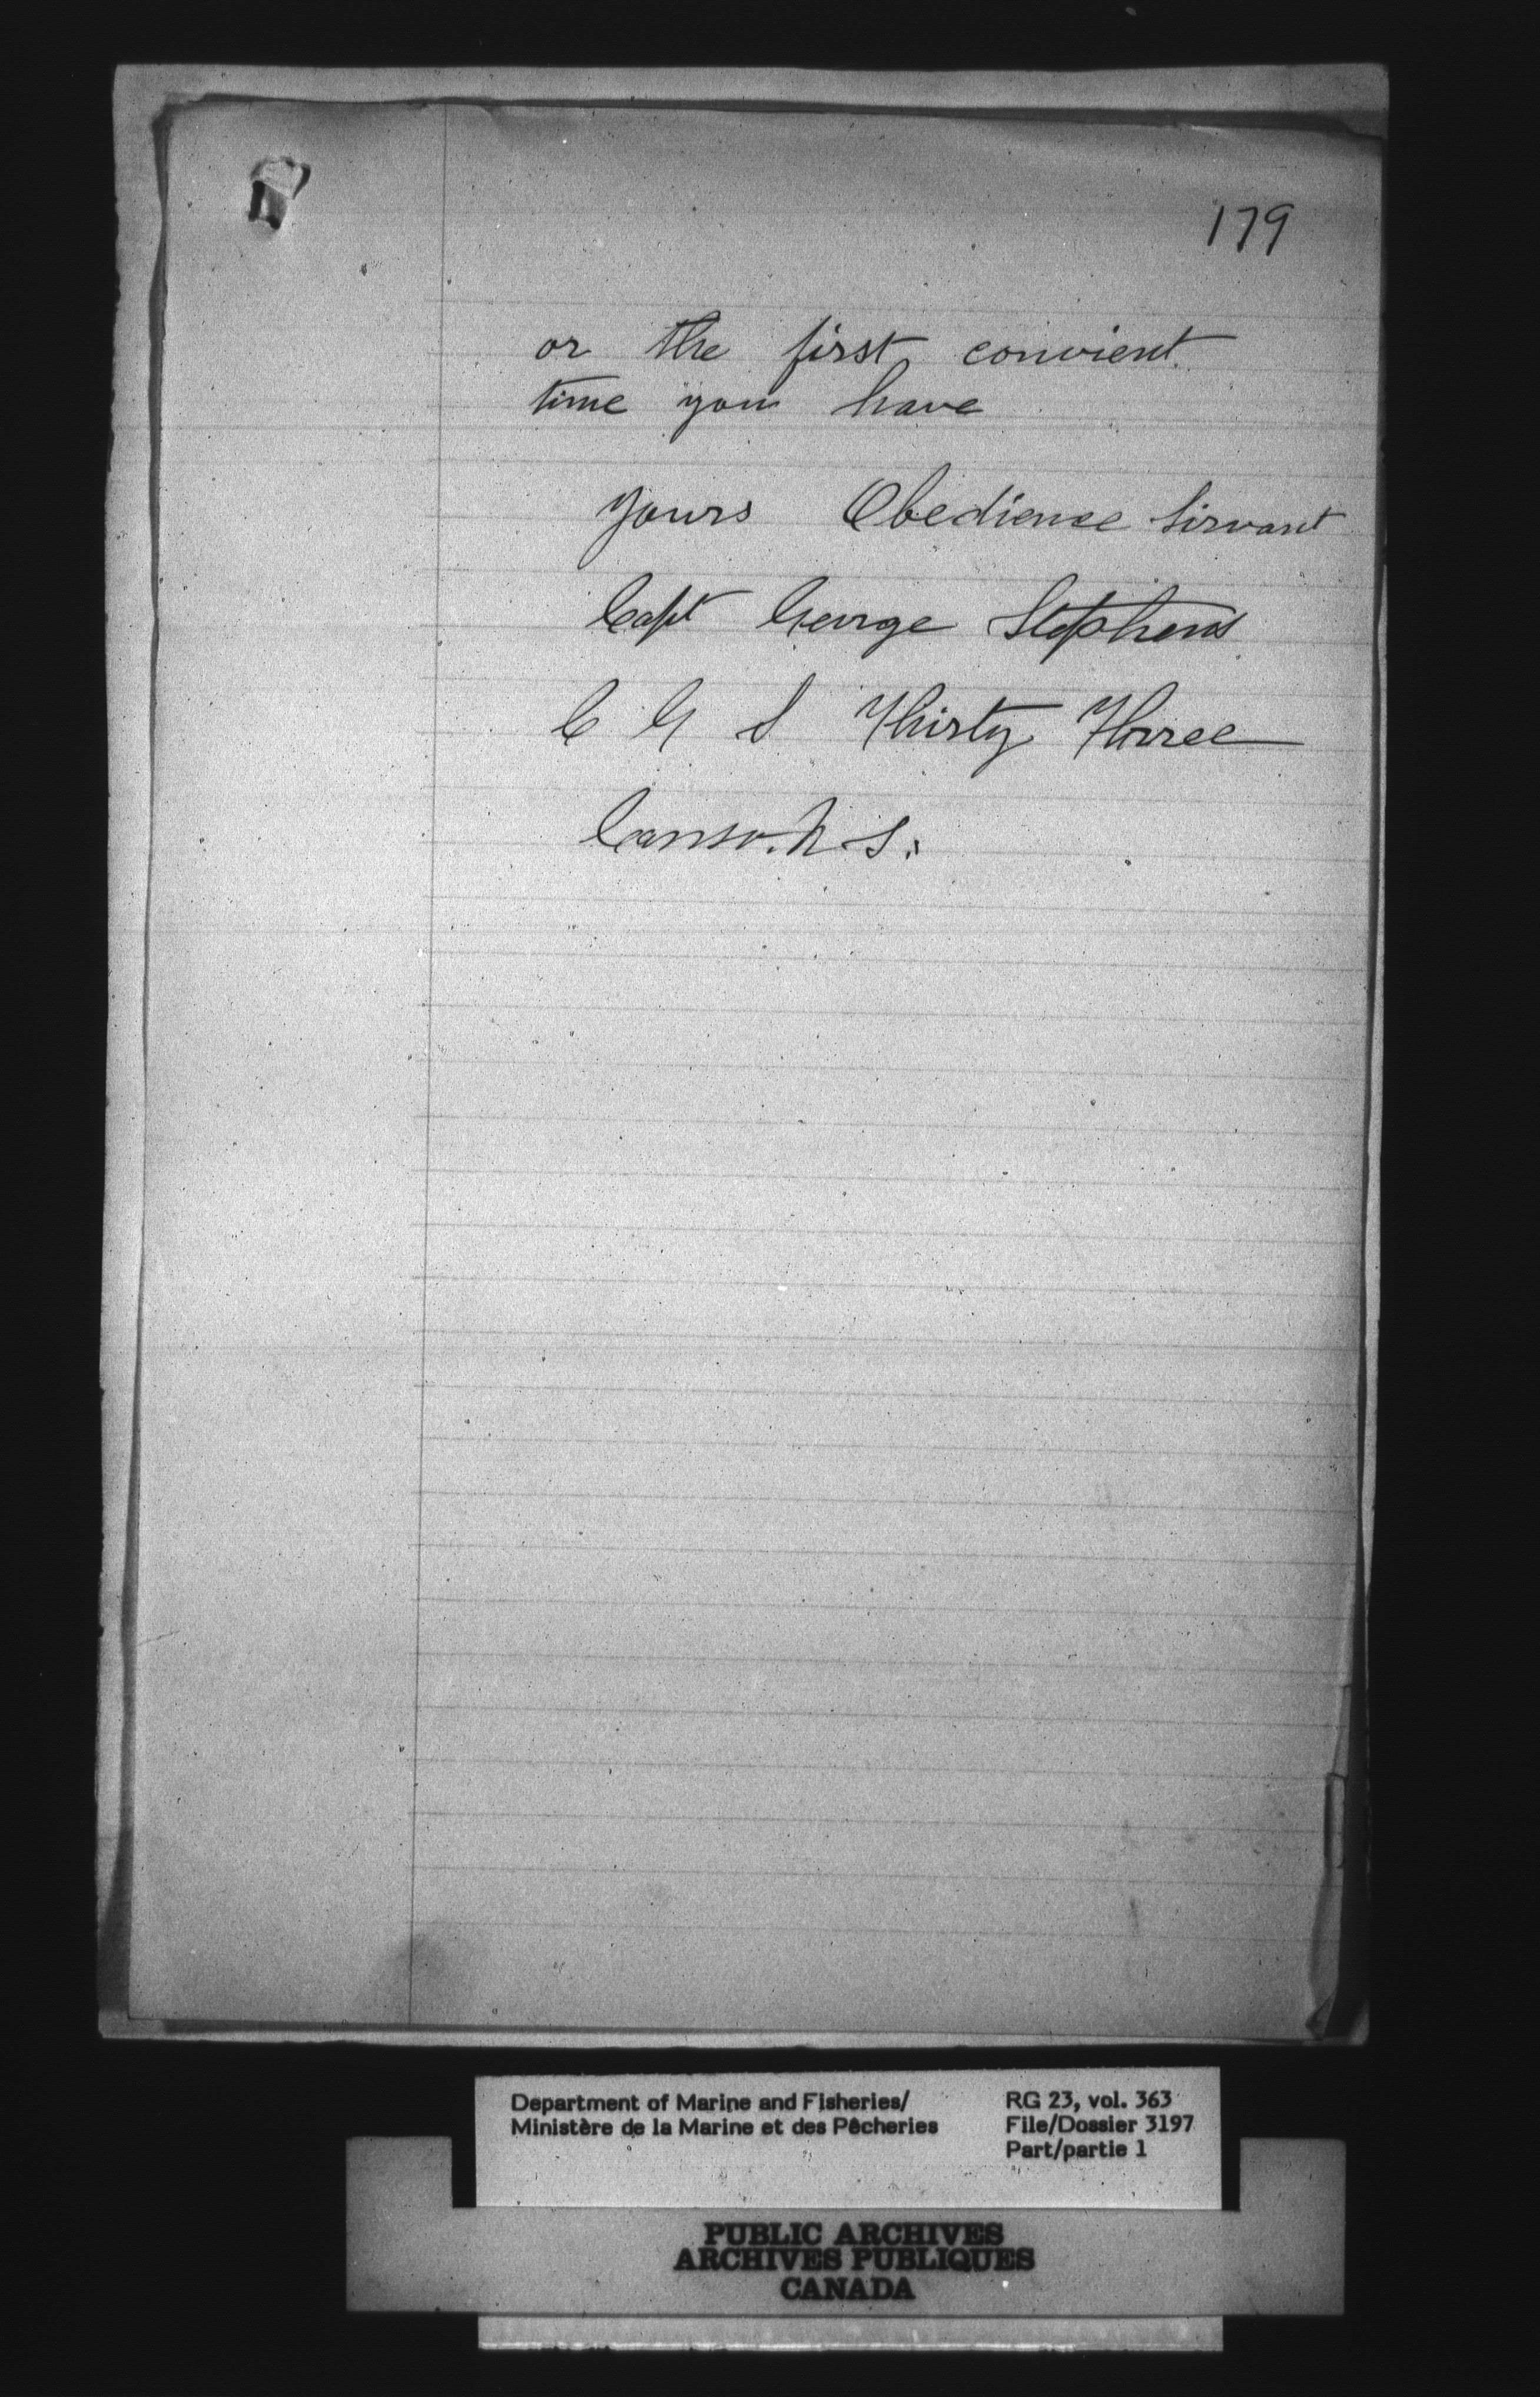 179
or the first convient
time you have
yours Obedience Sirvant
Capt George Stephens
C G S Thirty Three
Canso. N S.
Department of Marine and Fisheries/
Ministère de la Marine et des Pêcheries
RG 23, vol. 363
File/Dossier 3197
Part/partie 1
PUBLIC ARCHIVES
ARCHIVES PUBLIQUES
CANADA